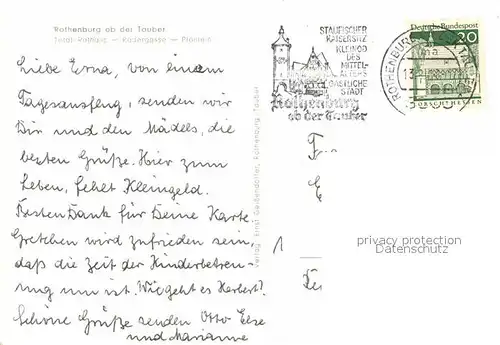 Rothenburg ob der Tauber
Total-Rathaus — Rödergasse — Plönlein
Liebe Erna, von einem
Tagesausflug, senden wir
Dir und den Mädels, die
besten Grüße. Hier zum
Leben, fehlt Kleingeld.
Besten Dank für Deine Karte
Gretchen wird zufrieden sein,
daß die Zeit der Kinderbetreu-
ung um ist. Wie geht es Herbert?
Schöne Grüße senden Otto Else
und Marianne
Verlag Ernst Geißendörfer, Rothenburg Tauber
STAUFISCHER
KAISERSITZ
KLEINOD
DES
MITTEL-
ALTERS
GASTLICHE
STADT
Rothenburg
ob der Tauber
ROTHENBURG
Deutsche Bundespost
20
LORSCH HESSEN
1
privacy protection
Datenschutz